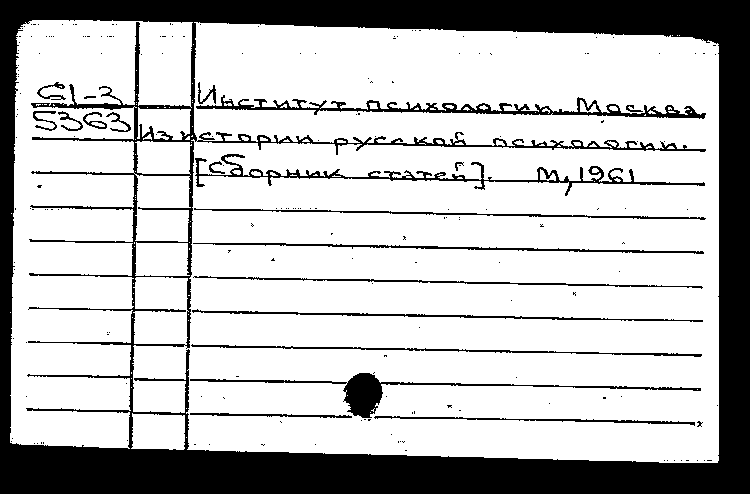 61-3 Институт психологии. Москва.
5363 Из истории русской психологии.
[Сборник статей]. М, 1961